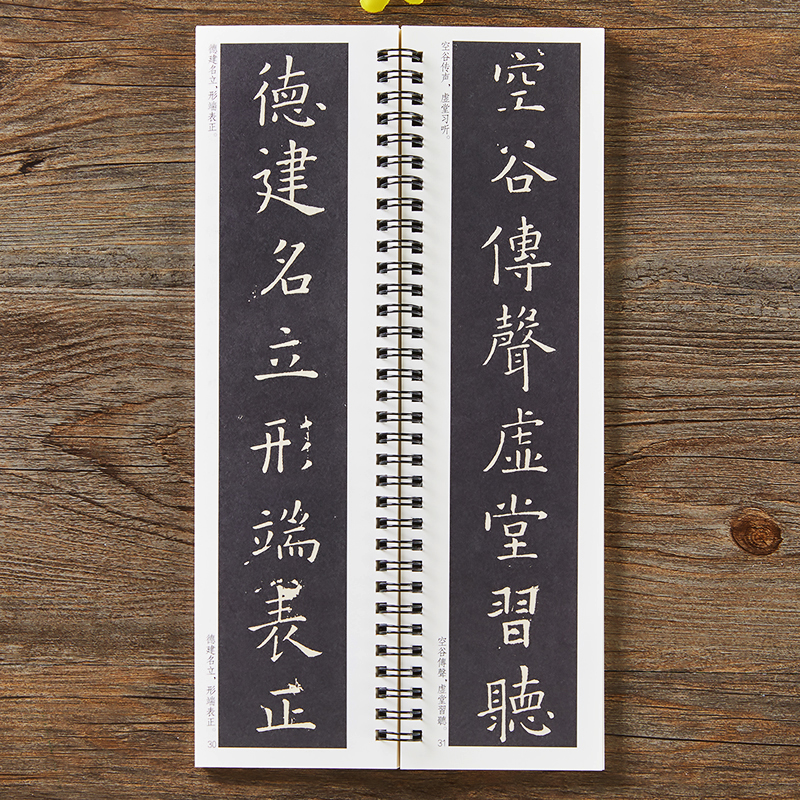 德建名立，形端表正。
德建名立形端表正
德建名立，形端表正。
30
空谷传声，虚堂习听。
空谷傳聲虛堂習聽
空谷傳聲，虛堂習聽。
31